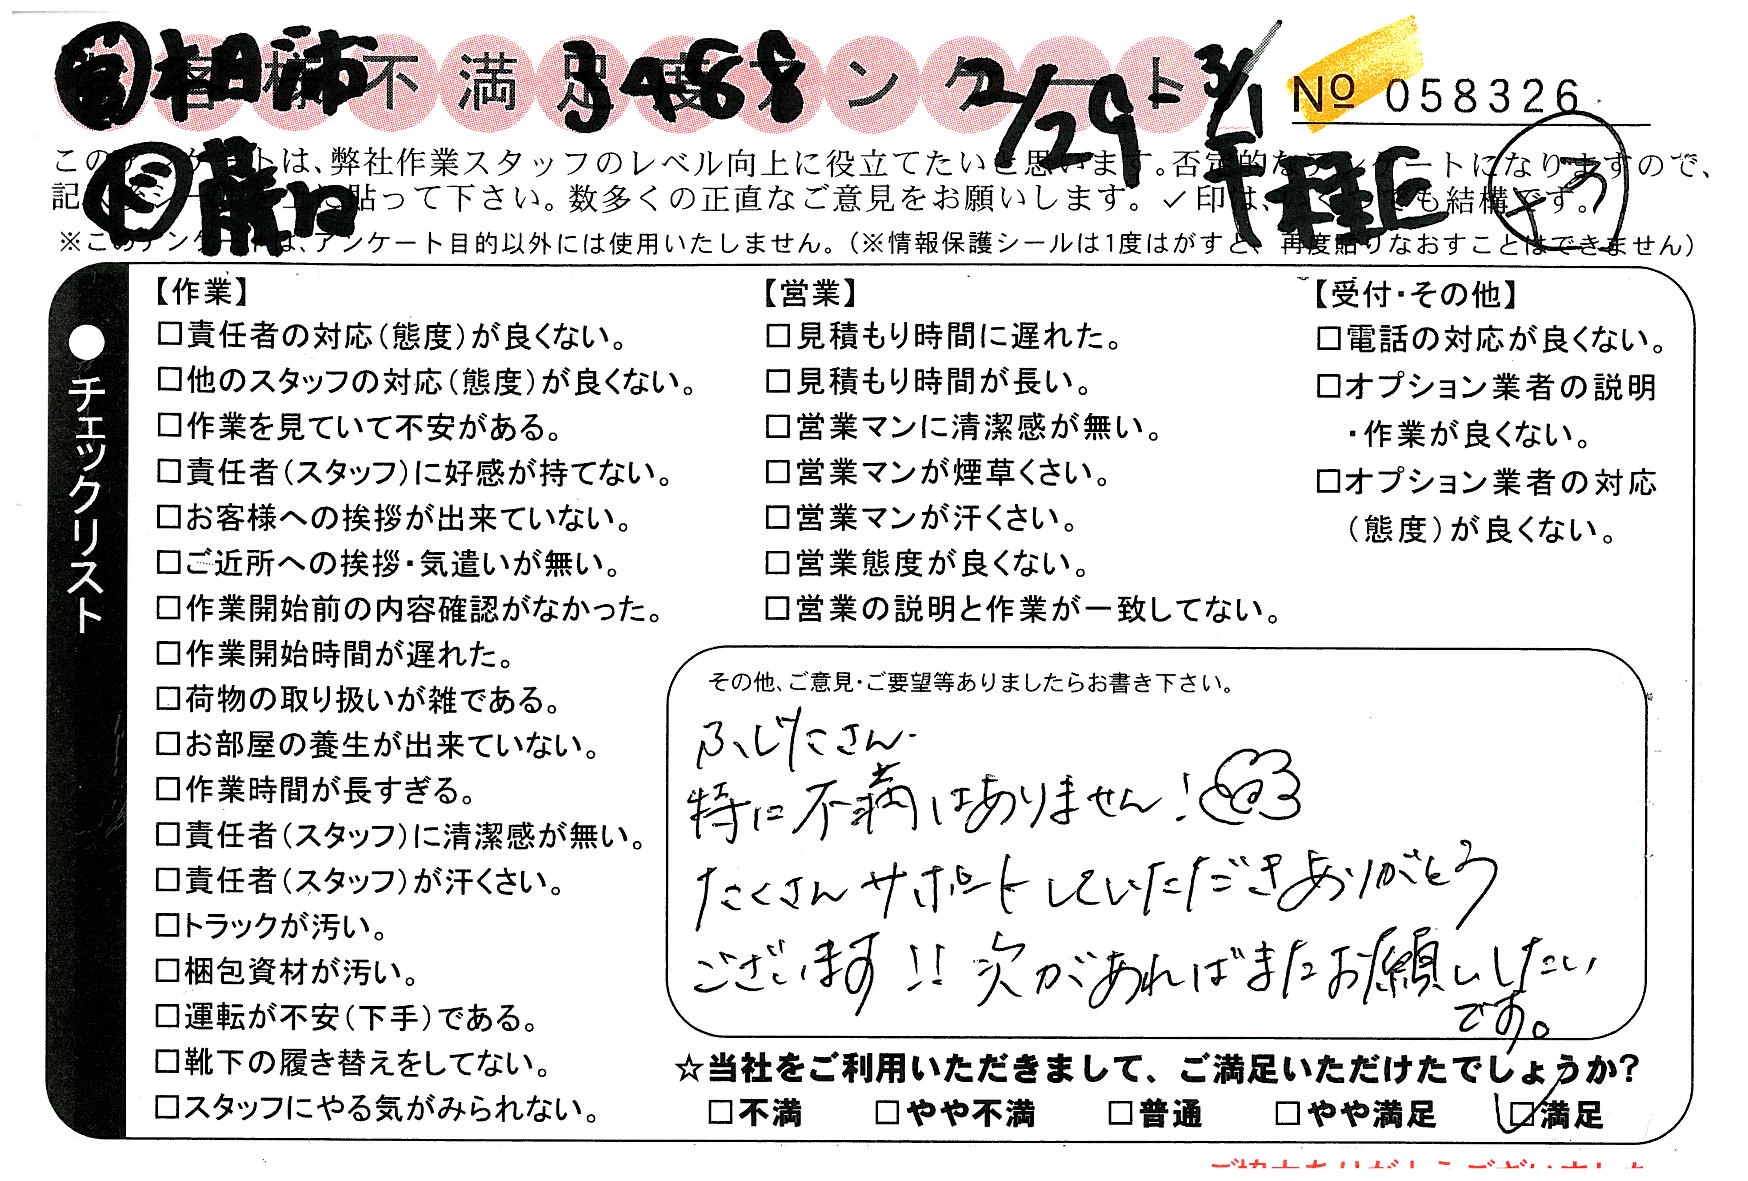 お客様不満足度アンケート
柏市 3468 2/29-3/1
No 058326
このアンケートは、弊社作業スタッフのレベル向上に役立てたいと思います。否定的なアンケートになりますので、
貼って下さい。数多くの正直なご意見をお願いします。✓印は、いくつでも結構です。
※このアンケートは、アンケート目的以外には使用いたしません。（※情報保護シールは1度はがすと、再度貼りなおすことはできません）
●チェックリスト
【作業】
□責任者の対応（態度）が良くない。
□他のスタッフの対応（態度）が良くない。
□作業を見ていて不安がある。
□責任者（スタッフ）に好感が持てない。
□お客様への挨拶が出来ていない。
□ご近所への挨拶・気遣いが無い。
□作業開始前の内容確認がなかった。
□作業開始時間が遅れた。
□荷物の取り扱いが雑である。
□お部屋の養生が出来ていない。
□作業時間が長すぎる。
□責任者（スタッフ）に清潔感が無い。
□責任者（スタッフ）が汗くさい。
□トラックが汚い。
□梱包資材が汚い。
□運転が不安（下手）である。
□靴下の履き替えをしてない。
□スタッフにやる気がみられない。
【営業】
□見積もり時間に遅れた。
□見積もり時間が長い。
□営業マンに清潔感が無い。
□営業マンが煙草くさい。
□営業マンが汗くさい。
□営業態度が良くない。
□営業の説明と作業が一致してない。
【受付・その他】
□電話の対応が良くない。
□オプション業者の説明
・作業が良くない。
□オプション業者の対応
（態度）が良くない。
その他、ご意見・ご要望等ありましたらお書き下さい。
ふじたさん
特に不満はありません！
たくさんサポートしていただきありがとう
ございます!! 次があればまたお願いしたい
です。
☆当社をご利用いただきまして、ご満足いただけたでしょうか？
□不満 □やや不満 □普通 □やや満足 ☑満足
ご協力ありがとうございました